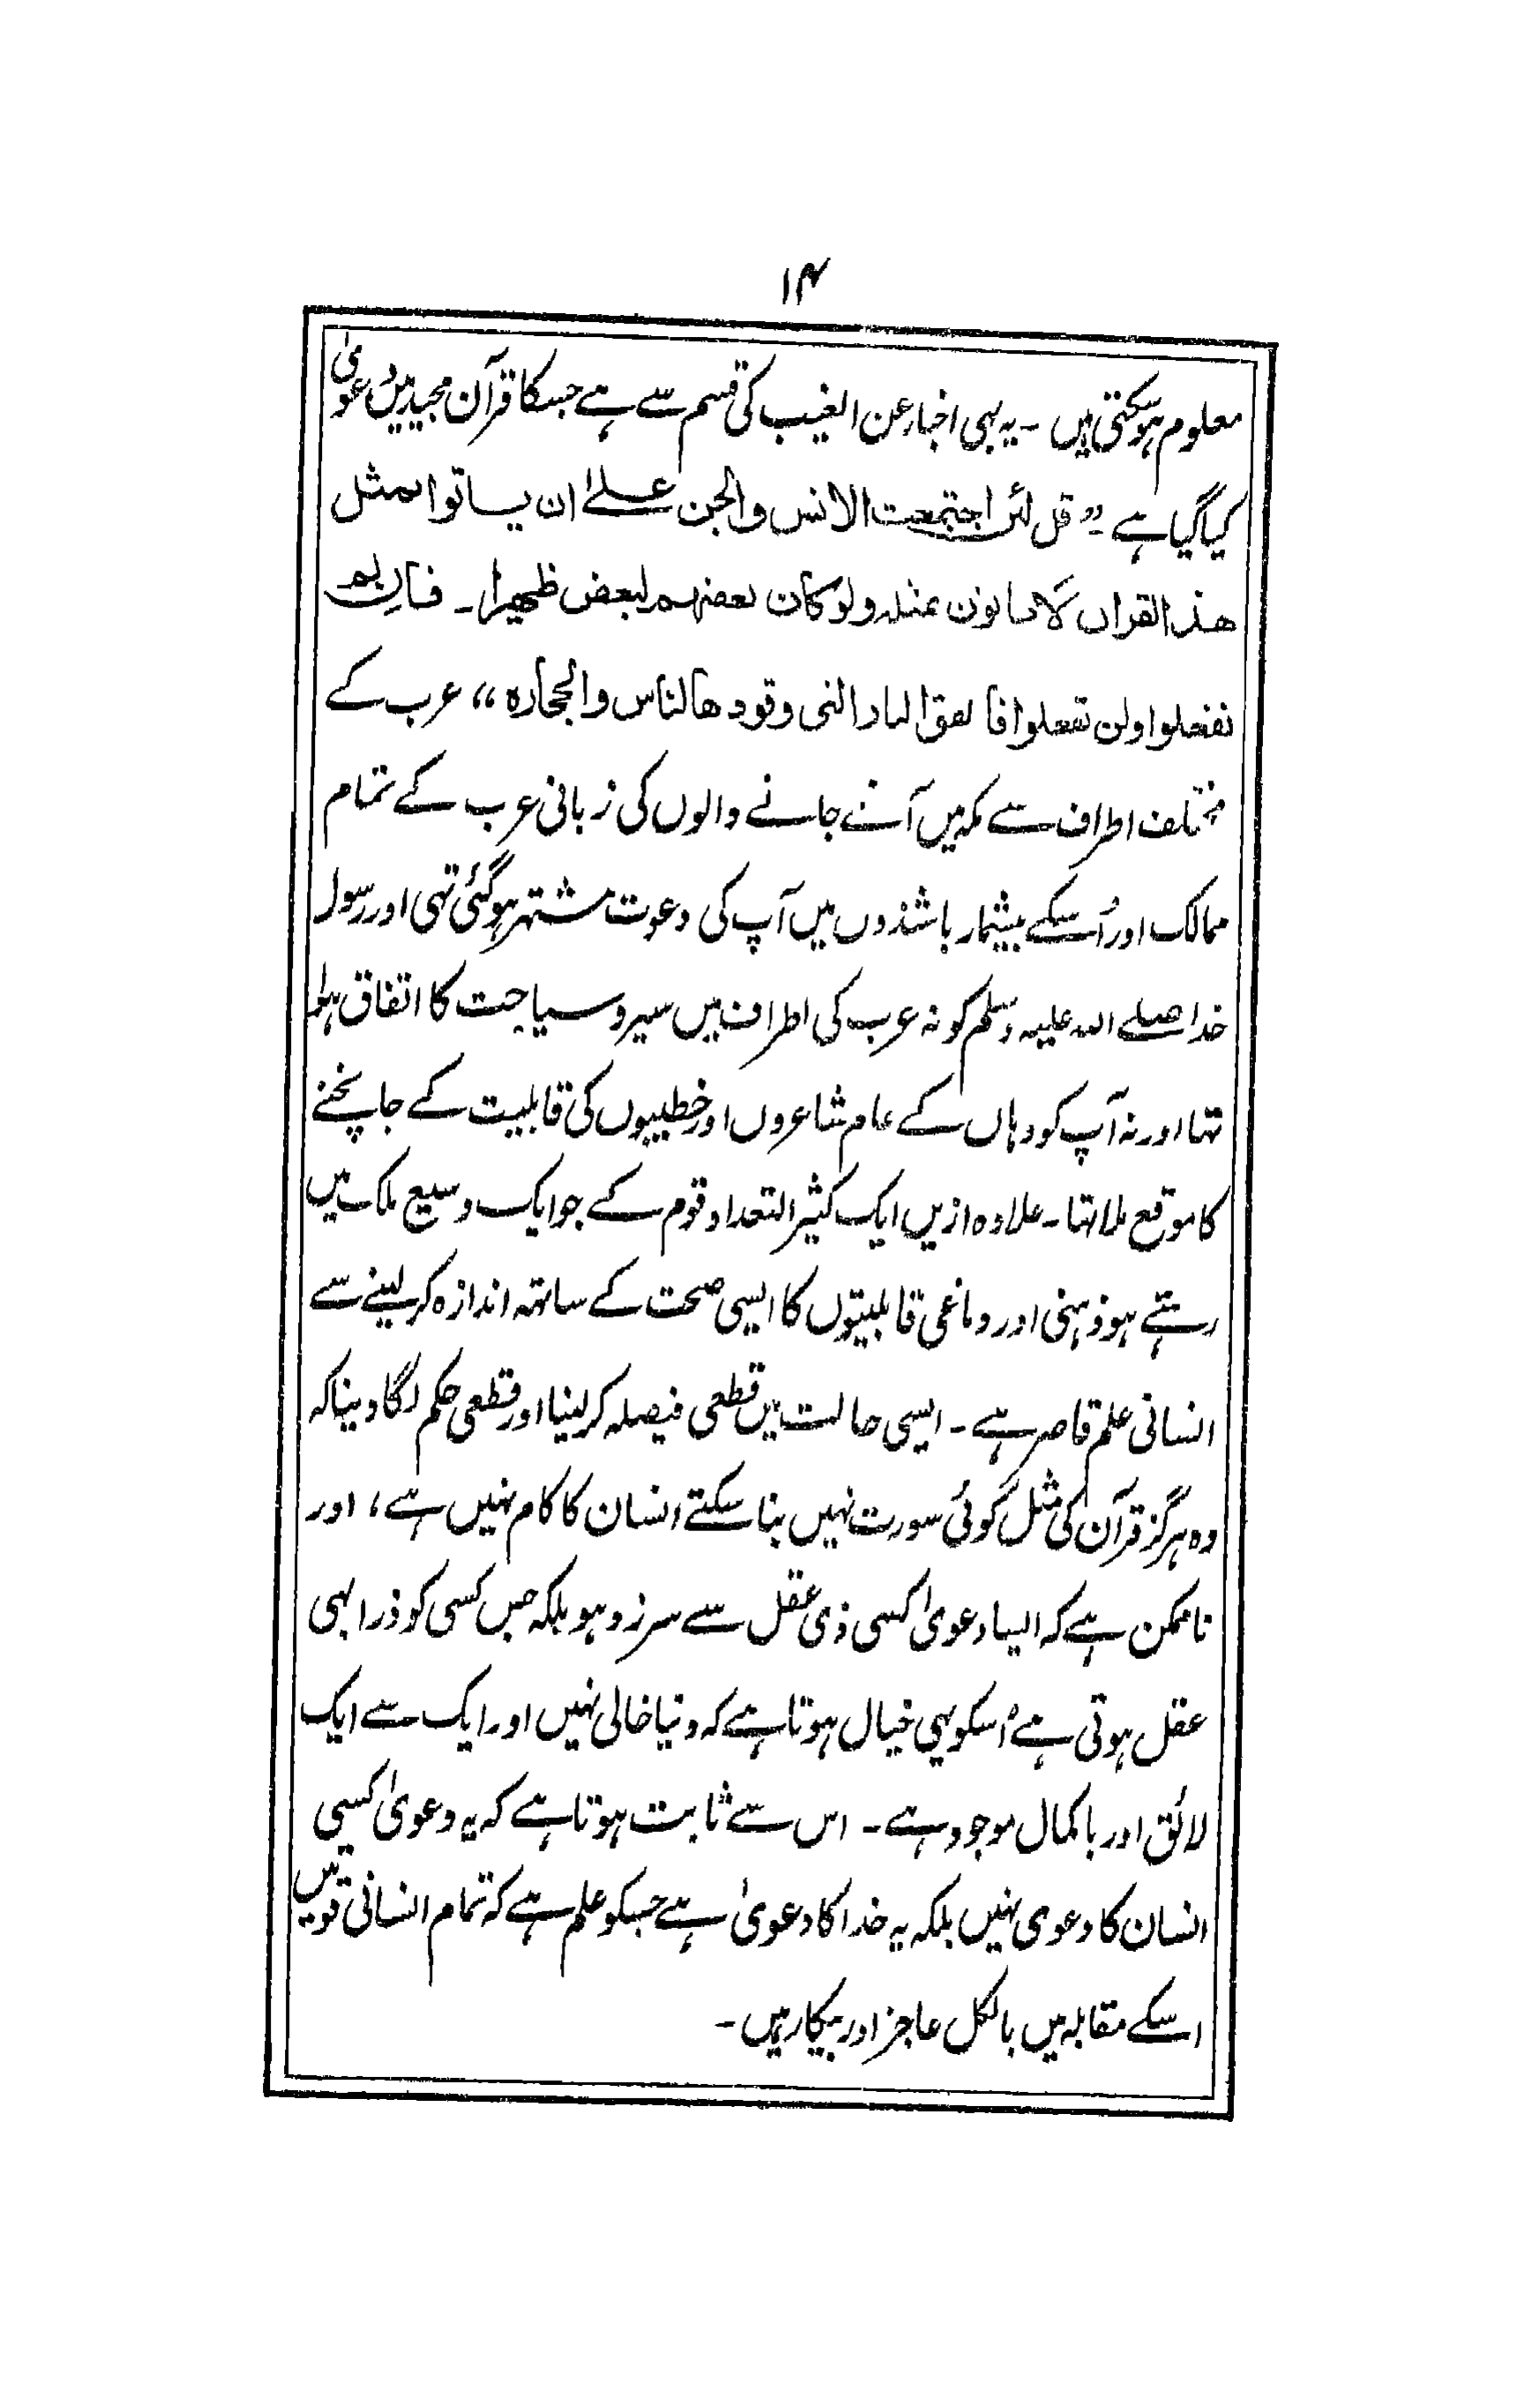 ۱۴
معلوم ہوسکتی ہیں ۔ یہ بھی اخبار عن الغیب کی قسم سے ہے جسکا قرآن مجید میں دعویٰ
کیا گیا ہے ۔ " قل لئن اجتمعت الانس والجن علےٰ ان یاتوا بمثل
ھذا القران لا یاتون بمثلہ ولو کان بعضہم لبعض ظھیرا ۔ فان لم
تفعلوا ولن تفعلوا فاتقوا النار التی وقودھا الناس والحجارہ ،، عرب کے
مختلف اطراف سے مکہ میں آنے جانے والوں کی زبانی عرب کے تمام
ممالک اور اُسکے بیشمار باشندوں میں آپ کی دعوت مشتہر ہوگئی تہی اور رسول
خدا صلے اللہ علیہ وسلم کو نہ عرب کی اطراف میں سیر و سیاحت کا اتفاق ہوا
تہا اور نہ آپ کو وہاں کے عام شاعروں اور خطیبوں کی قابلیت کے جانچنے
کا موقع ملا تہا ۔ علاوہ ازیں ایک کثیر التعداد قوم کے جو ایک وسیع ملک میں
رہتے ہو ذہنی اور دماغی قابلیتوں کا ایسی صحت کے ساتہہ اندازہ کر لینے سے
انسانی علم قاصر ہے ۔ ایسی حالت میں قطعی فیصلہ کرلینا اور قطعی حکم لگا دینا کہ
وہ ہرگز قرآن کی مثل کوئی سورت نہیں بنا سکتے انسان کا کام نہیں ہے ، اور
ناممکن ہے کہ ایسا دعویٰ کسی ذی عقل سے سرزد ہو بلکہ جس کسی کو ذرا بہی
عقل ہوتی ہے اُسکو یہی خیال ہوتا ہے کہ دنیا خالی نہیں اور ایک سے ایک
لائق اور باکمال موجود ہے ۔ اس سے ثابت ہوتا ہے کہ یہ دعویٰ کسی
انسان کا دعوی نہیں بلکہ یہ خدا کا دعویٰ ہے جسکو علم ہے کہ تمام انسانی قوتیں
اسکے مقابلہ میں بالکل عاجز اور بیکار ہیں ۔